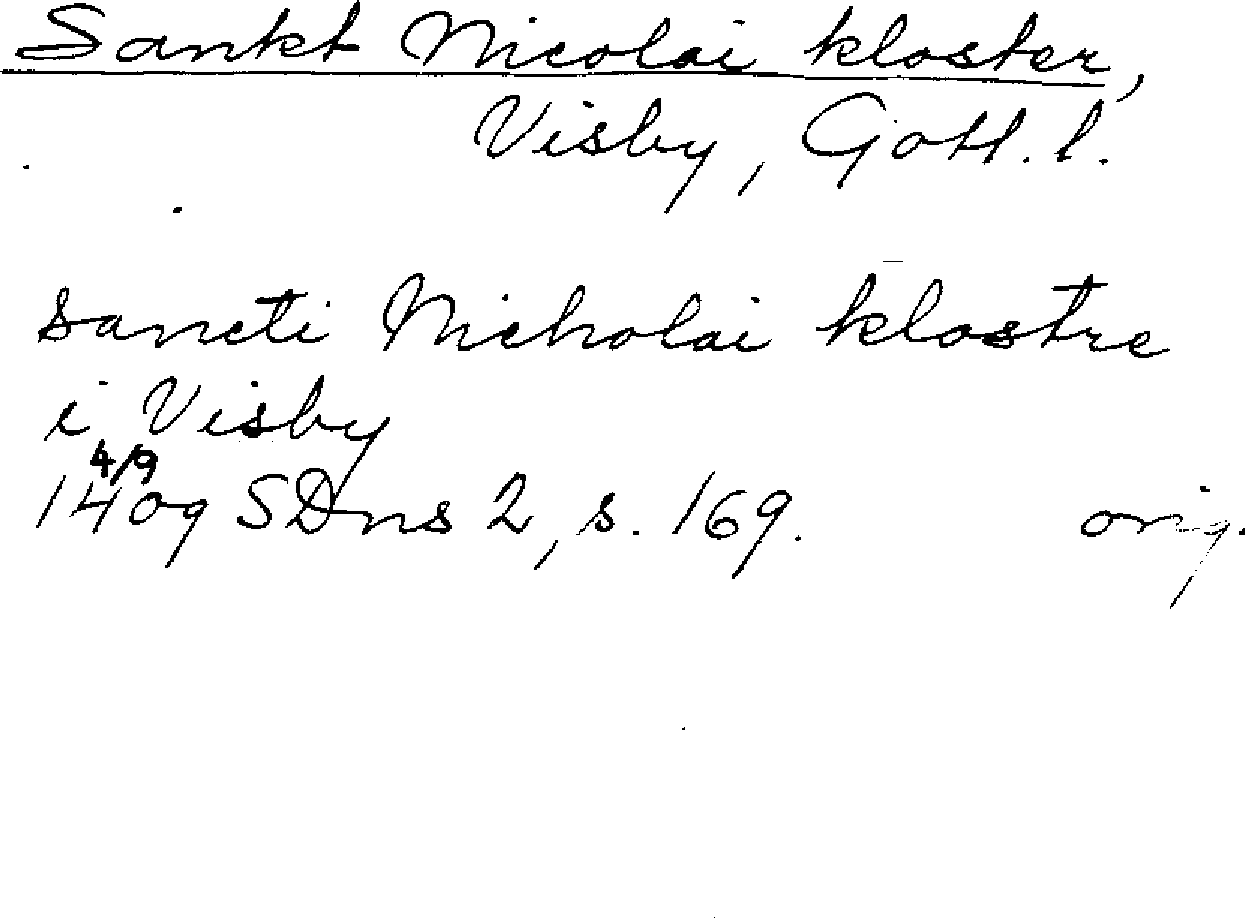 Sankt Nicolai kloster,
Visby, Gotl. l.
sancti Nicholai klostre
i Visby
4/9
1409 SDns 2, s. 169. orig.